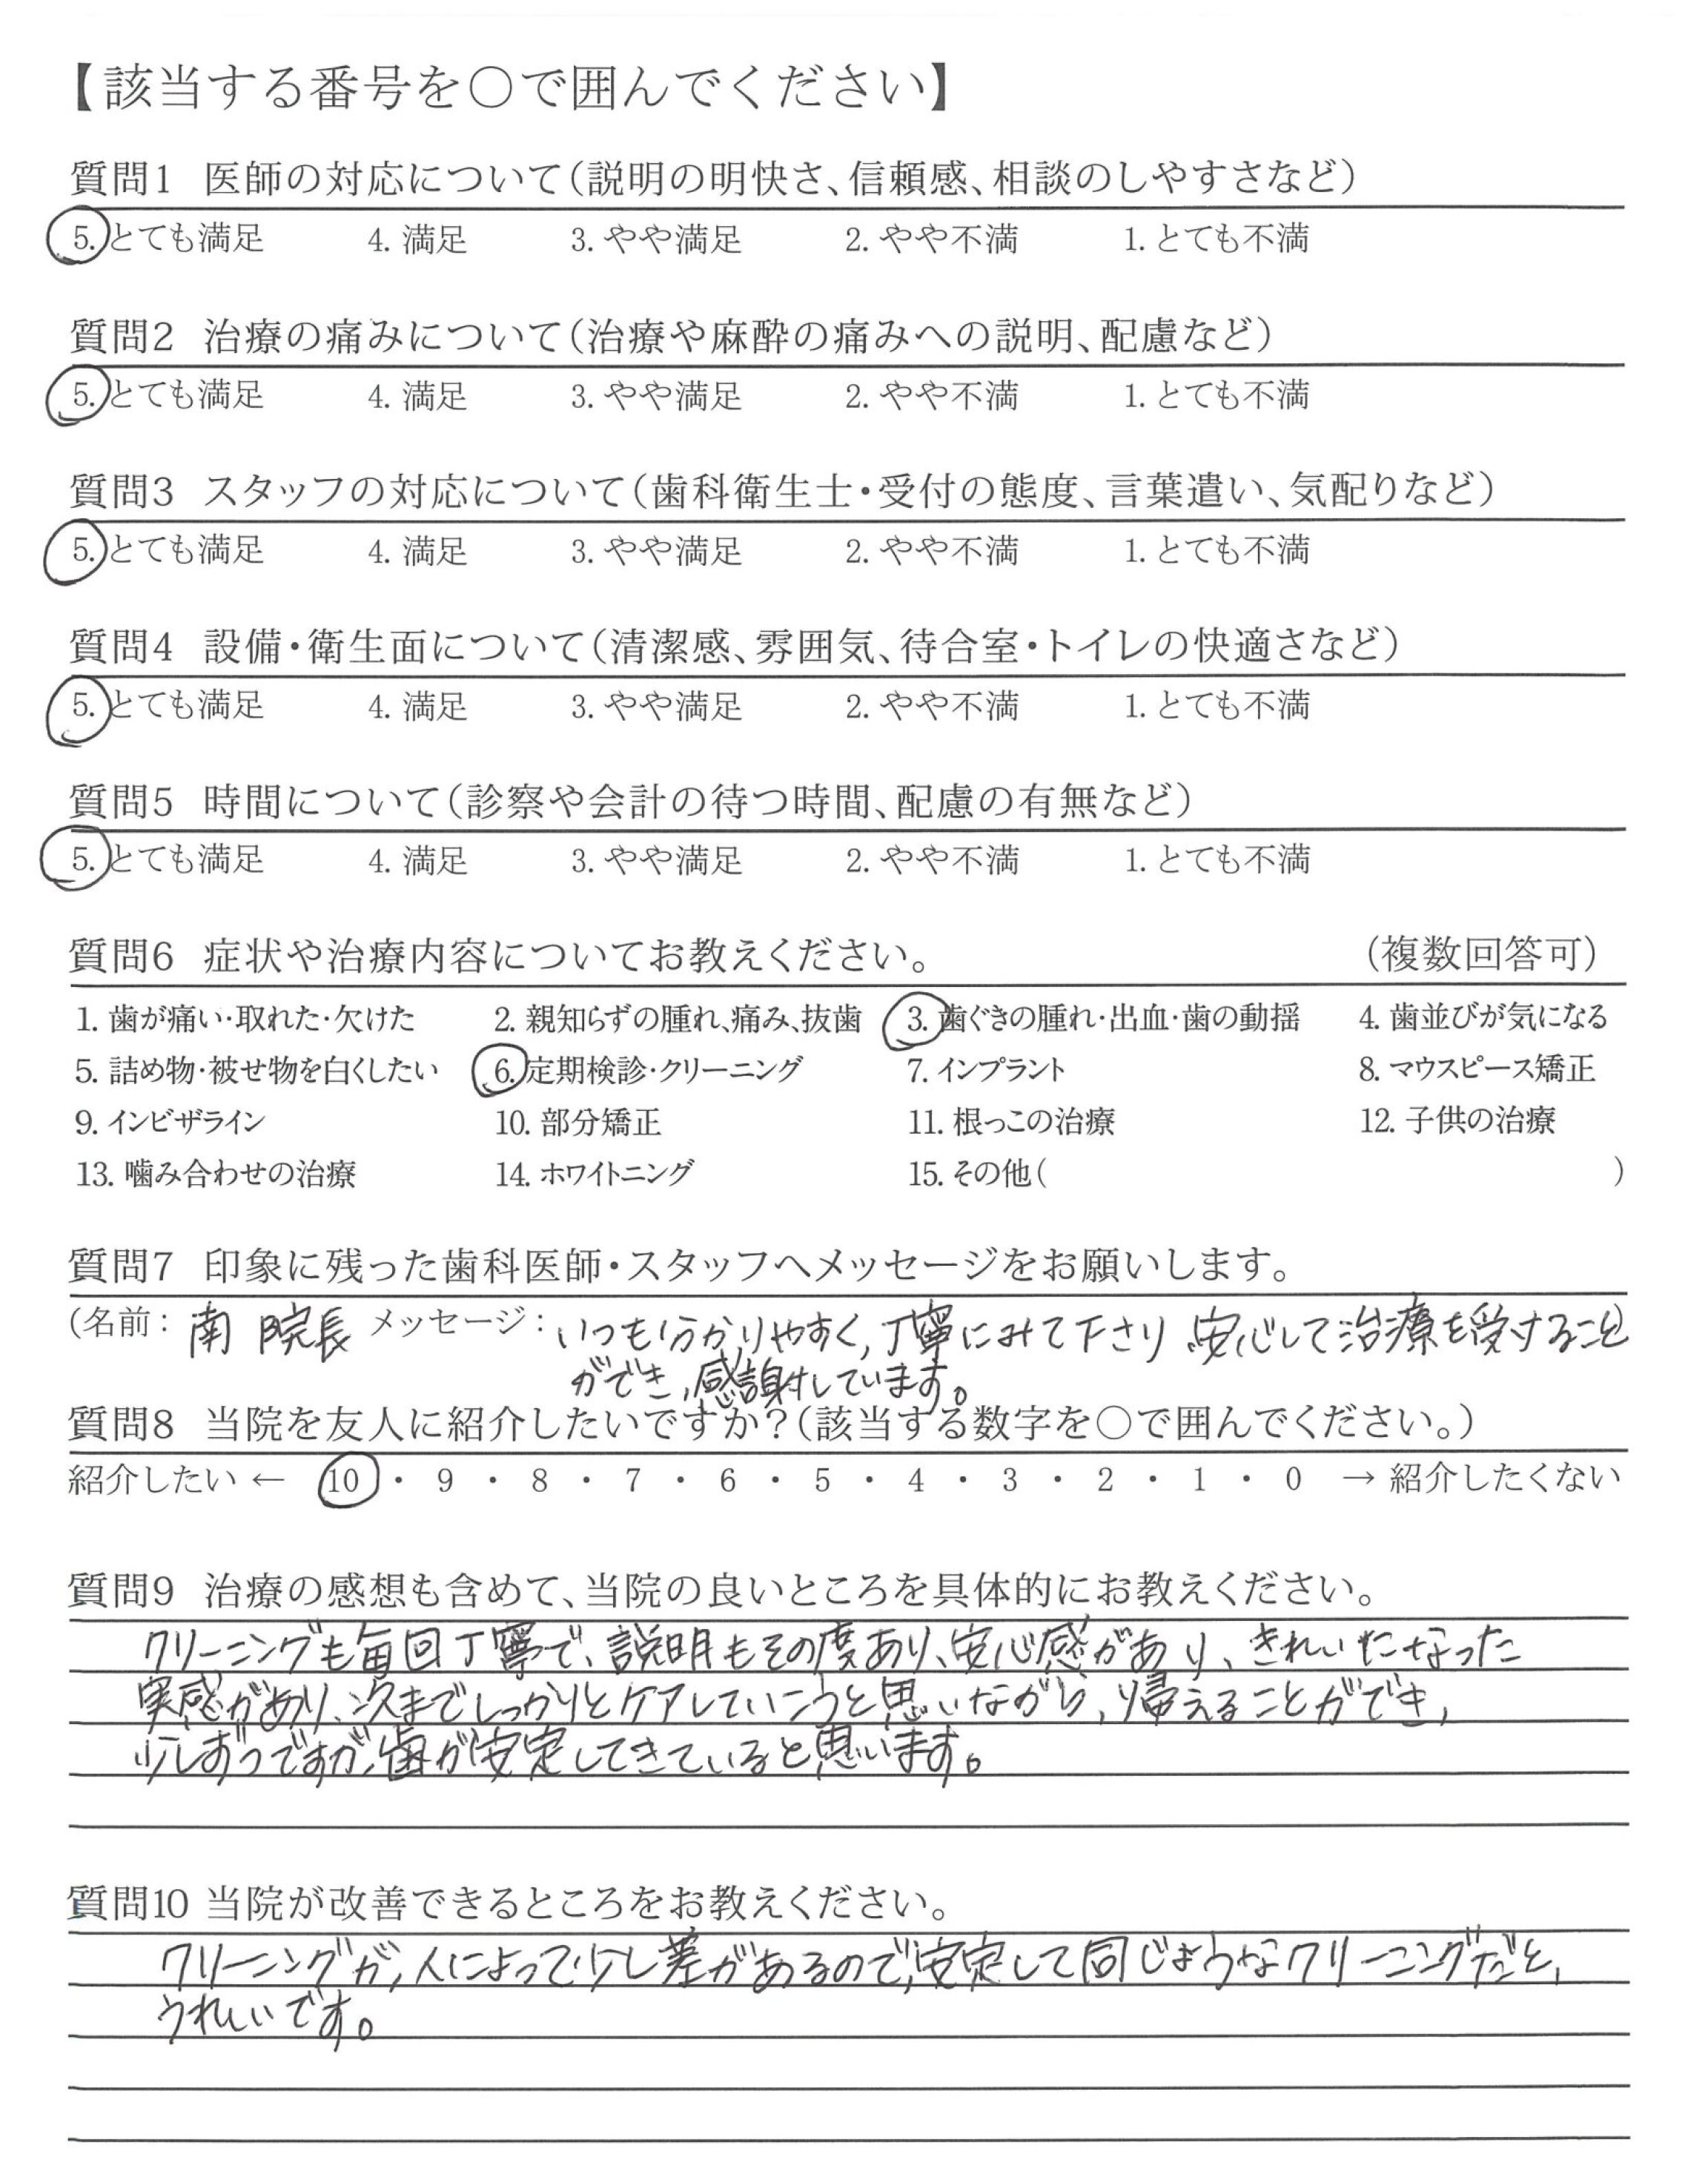 【該当する番号を○で囲んでください】
質問1 医師の対応について（説明の明快さ、信頼感、相談のしやすさなど）
5. とても満足 4. 満足 3. やや満足 2. やや不満 1. とても不満
質問2 治療の痛みについて（治療や麻酔の痛みへの説明、配慮など）
5. とても満足 4. 満足 3. やや満足 2. やや不満 1. とても不満
質問3 スタッフの対応について（歯科衛生士・受付の態度、言葉遣い、気配りなど）
5. とても満足 4. 満足 3. やや満足 2. やや不満 1. とても不満
質問4 設備・衛生面について（清潔感、雰囲気、待合室・トイレの快適さなど）
5. とても満足 4. 満足 3. やや満足 2. やや不満 1. とても不満
質問5 時間について（診察や会計の待つ時間、配慮の有無など）
5. とても満足 4. 満足 3. やや満足 2. やや不満 1. とても不満
質問6 症状や治療内容についてお教えください。 （複数回答可）
1. 歯が痛い・取れた・欠けた 2. 親知らずの腫れ、痛み、抜歯 3. 歯ぐきの腫れ・出血・歯の動揺 4. 歯並びが気になる
5. 詰め物・被せ物を白くしたい 6. 定期検診・クリーニング 7. インプラント 8. マウスピース矯正
9. インビザライン 10. 部分矯正 11. 根っこの治療 12. 子供の治療
13. 噛み合わせの治療 14. ホワイトニング 15. その他（ ）
質問7 印象に残った歯科医師・スタッフへメッセージをお願いします。
（名前： 南 院長 メッセージ： いつも分かりやすく, 丁寧にみて下さり 安心して治療を受けること
ができ, 感謝しています。
質問8 当院を友人に紹介したいですか？（該当する数字を○で囲んでください。）
紹介したい ← 10 ・ 9 ・ 8 ・ 7 ・ 6 ・ 5 ・ 4 ・ 3 ・ 2 ・ 1 ・ 0 → 紹介したくない
質問9 治療の感想も含めて、当院の良いところを具体的にお教えください。
クリーニングも毎回丁寧で、説明もその度あり、安心感があり、きれいになった
実感があり、次までしっかりとケアしていこうと思いながら, 帰えることができ,
少しずつですが, 歯が安定してきていると思います。
質問10 当院が改善できるところをお教えください。
クリーニングが, 人によって少し差があるので, 安定して同じようなクリーニングだと,
うれしいです。